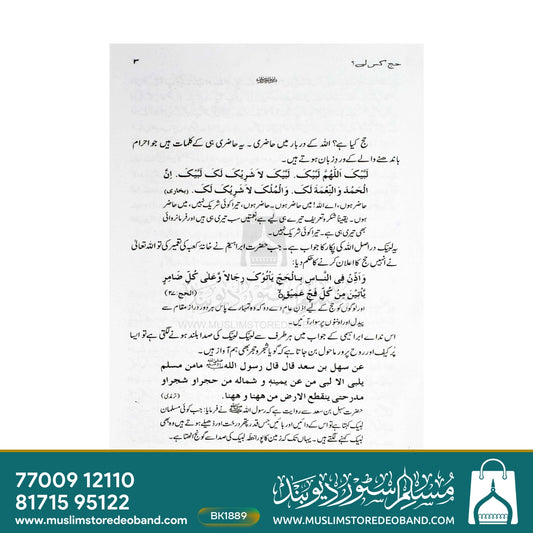 حج کس لیے؟ ۳
حج کیا ہے؟ اللہ کے دربار میں حاضری ۔ یہ حاضری ہی کے کلمات ہیں جو احرام
باندھنے والے کے وردِ زبان ہوتے ہیں۔
لَبَّيْکَ اَللّٰهُمَّ لَبَّيْکَ. لَبَّيْکَ لاَ شَرِيْکَ لَکَ لَبَّيْکَ. اِنَّ
الْحَمْدَ وَالنِّعْمَةَ لَکَ. وَالْمُلْکَ لاَ شَرِيْکَ لَکَ. (بخاری)
حاضر ہوں، اے اللہ! میں حاضر ہوں۔ حاضر ہوں، تیرا کوئی شریک نہیں، میں حاضر
ہوں۔ یقیناً شکر و تعریف تیرے ہی لیے ہے نعمتیں سب تیری ہی ہیں اور فرمانروائی
بھی تیری ہی ہے۔ تیرا کوئی شریک نہیں۔
یہ لبیک دراصل اللہ کی پکار کا جواب ہے۔ جب حضرت ابراہیمؑ نے خانۂ کعبہ کی تعمیر کی تو اللہ تعالیٰ
نے انہیں حج کا اعلان کرنے کا حکم دیا:
وَاَذِّنْ فِی النَّاسِ بِالْحَجِّ يَاْتُوْکَ رِجَالاً وَّعَلٰی کُلِّ ضَامِرٍ
يَّاْتِيْنَ مِنْ کُلِّ فَجٍّ عَمِيْقٍ (الحج:۲۷)
اور لوگوں کو حج کے لیے اِذنِ عام دے دو کہ وہ تمہارے پاس ہر دور دراز مقام سے
پیدل اور اونٹوں پر سوار آئیں۔
اس ندائے ابراہیمی کے جواب میں ہر طرف سے لبیک لبیک کی صدا بلند ہونے لگتی ہے تو ایسا
پُر کیف اور روح پرور ماحول بن جاتا ہے کہ گویا شجر و حجر بھی ہم آواز ہیں۔
عن سهل بن سعد قال قال رسول اللهﷺ مامن مسلم
يلبی الا لبی من عن يمينهٖ و شماله من حجر او شجر او
مدر حتی ينقطع الارض من ههنا و ههنا. (ترمذی)
حضرت سہل بن سعد سے روایت ہے کہ رسول اللہ ﷺ نے فرمایا: جب کوئی مسلمان
لبیک کہتا ہے تو اس کے دائیں اور بائیں جس قدر پتھر درخت اور ڈھیلے ہوتے ہیں وہ بھی
لبیک کہنے لگتے ہیں۔ یہاں تک کہ زمین کا پورا خطہ لبیک کی صدا سے گونج اٹھتا ہے۔
مسلم اسٹور دیوبند
WWW.MUSLIMSTOREDEOBAND.COM
77009 12110
81715 95122
www.muslimstoredeoband.com
BK1889
مسلم اسٹور دیوبند
WWW.MUSLIMSTOREDEOBAND.COM